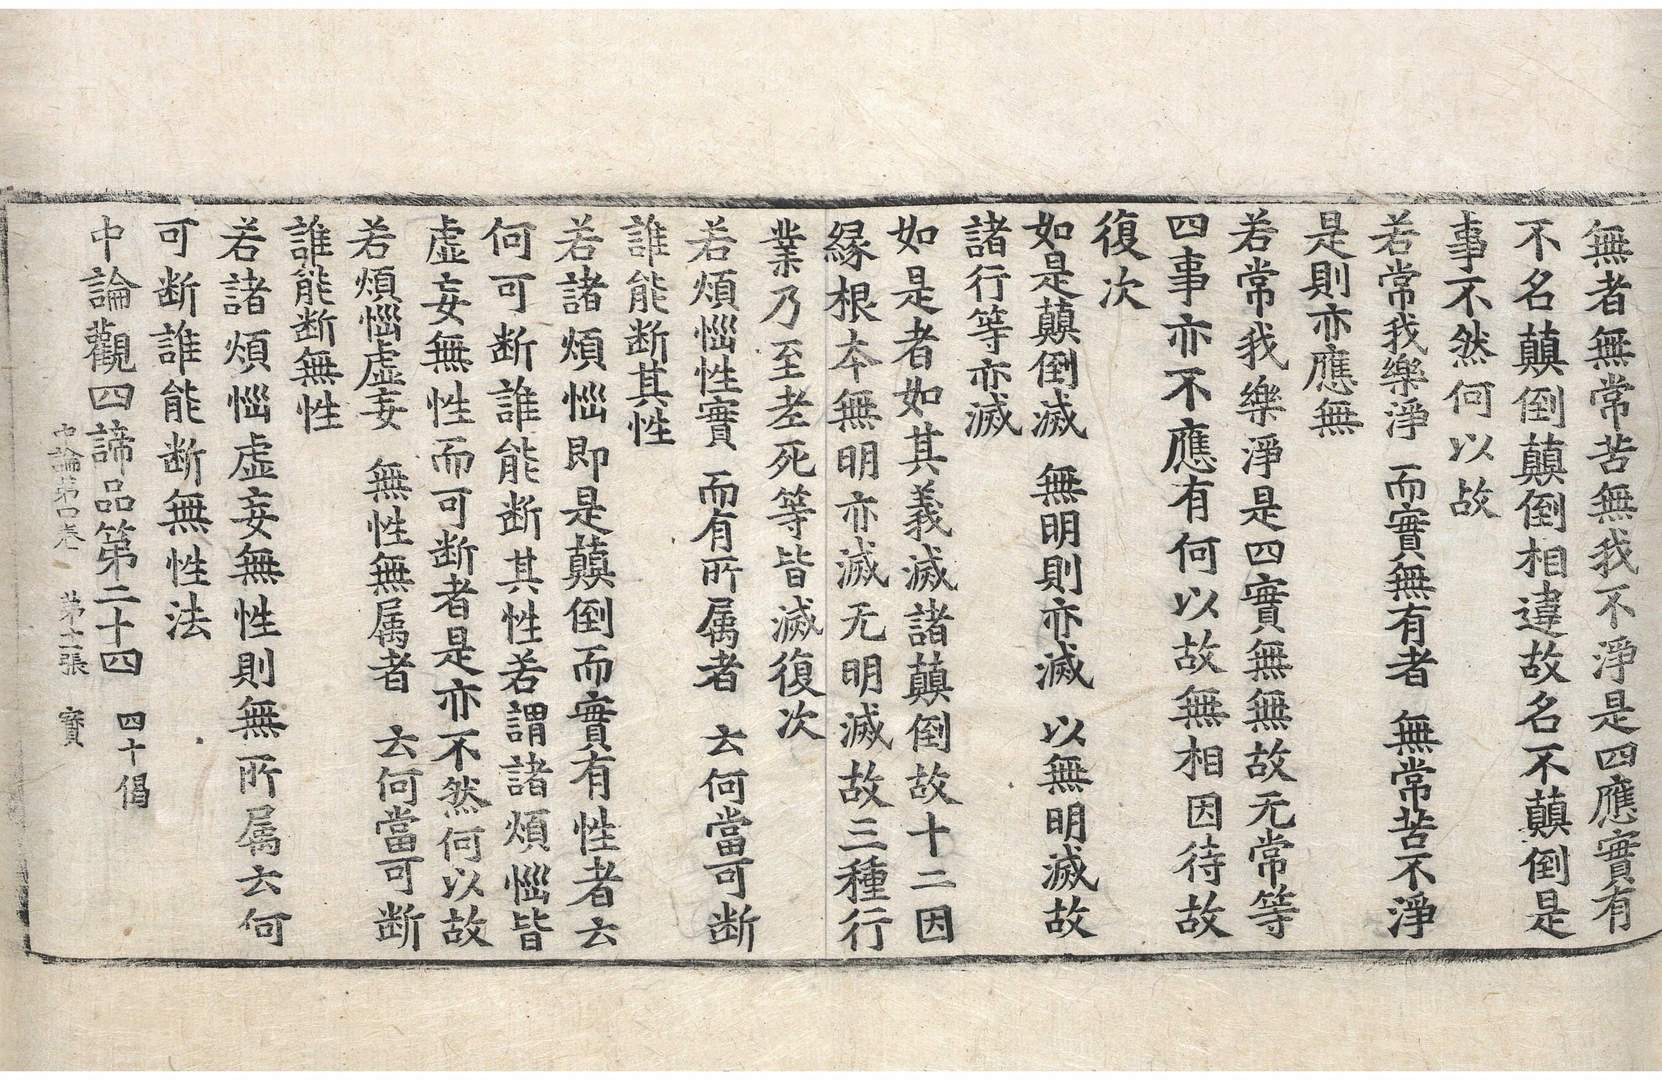 無者無常苦無我不淨是四應實有
不名顚倒顚倒相違故名不顚倒是
事不然何以故
若常我樂淨　而實無有者　無常苦不淨
是則亦應無
若常我樂淨是四實無無故无常等
四事亦不應有何以故無相因待故
復次
如是顚倒滅　無明則亦滅　以無明滅故
諸行等亦滅
如是者如其義滅諸顚倒故十二因
縁根本無明亦滅无明滅故三種行
業乃至老死等皆滅復次
若煩惱性實　而有所属者　云何當可断
誰能断其性
若諸煩惱即是顚倒而實有性者云
何可断誰能断其性若謂諸煩惱皆
虛妄無性而可断者是亦不然何以故
若煩惱虛妄　無性無属者　云何當可断
誰能断無性
若諸煩惱虛妄無性則無所属云何
可断誰能断無性法
中論觀四諦品第二十四　四十偈
中論第四卷　第十二張　寶